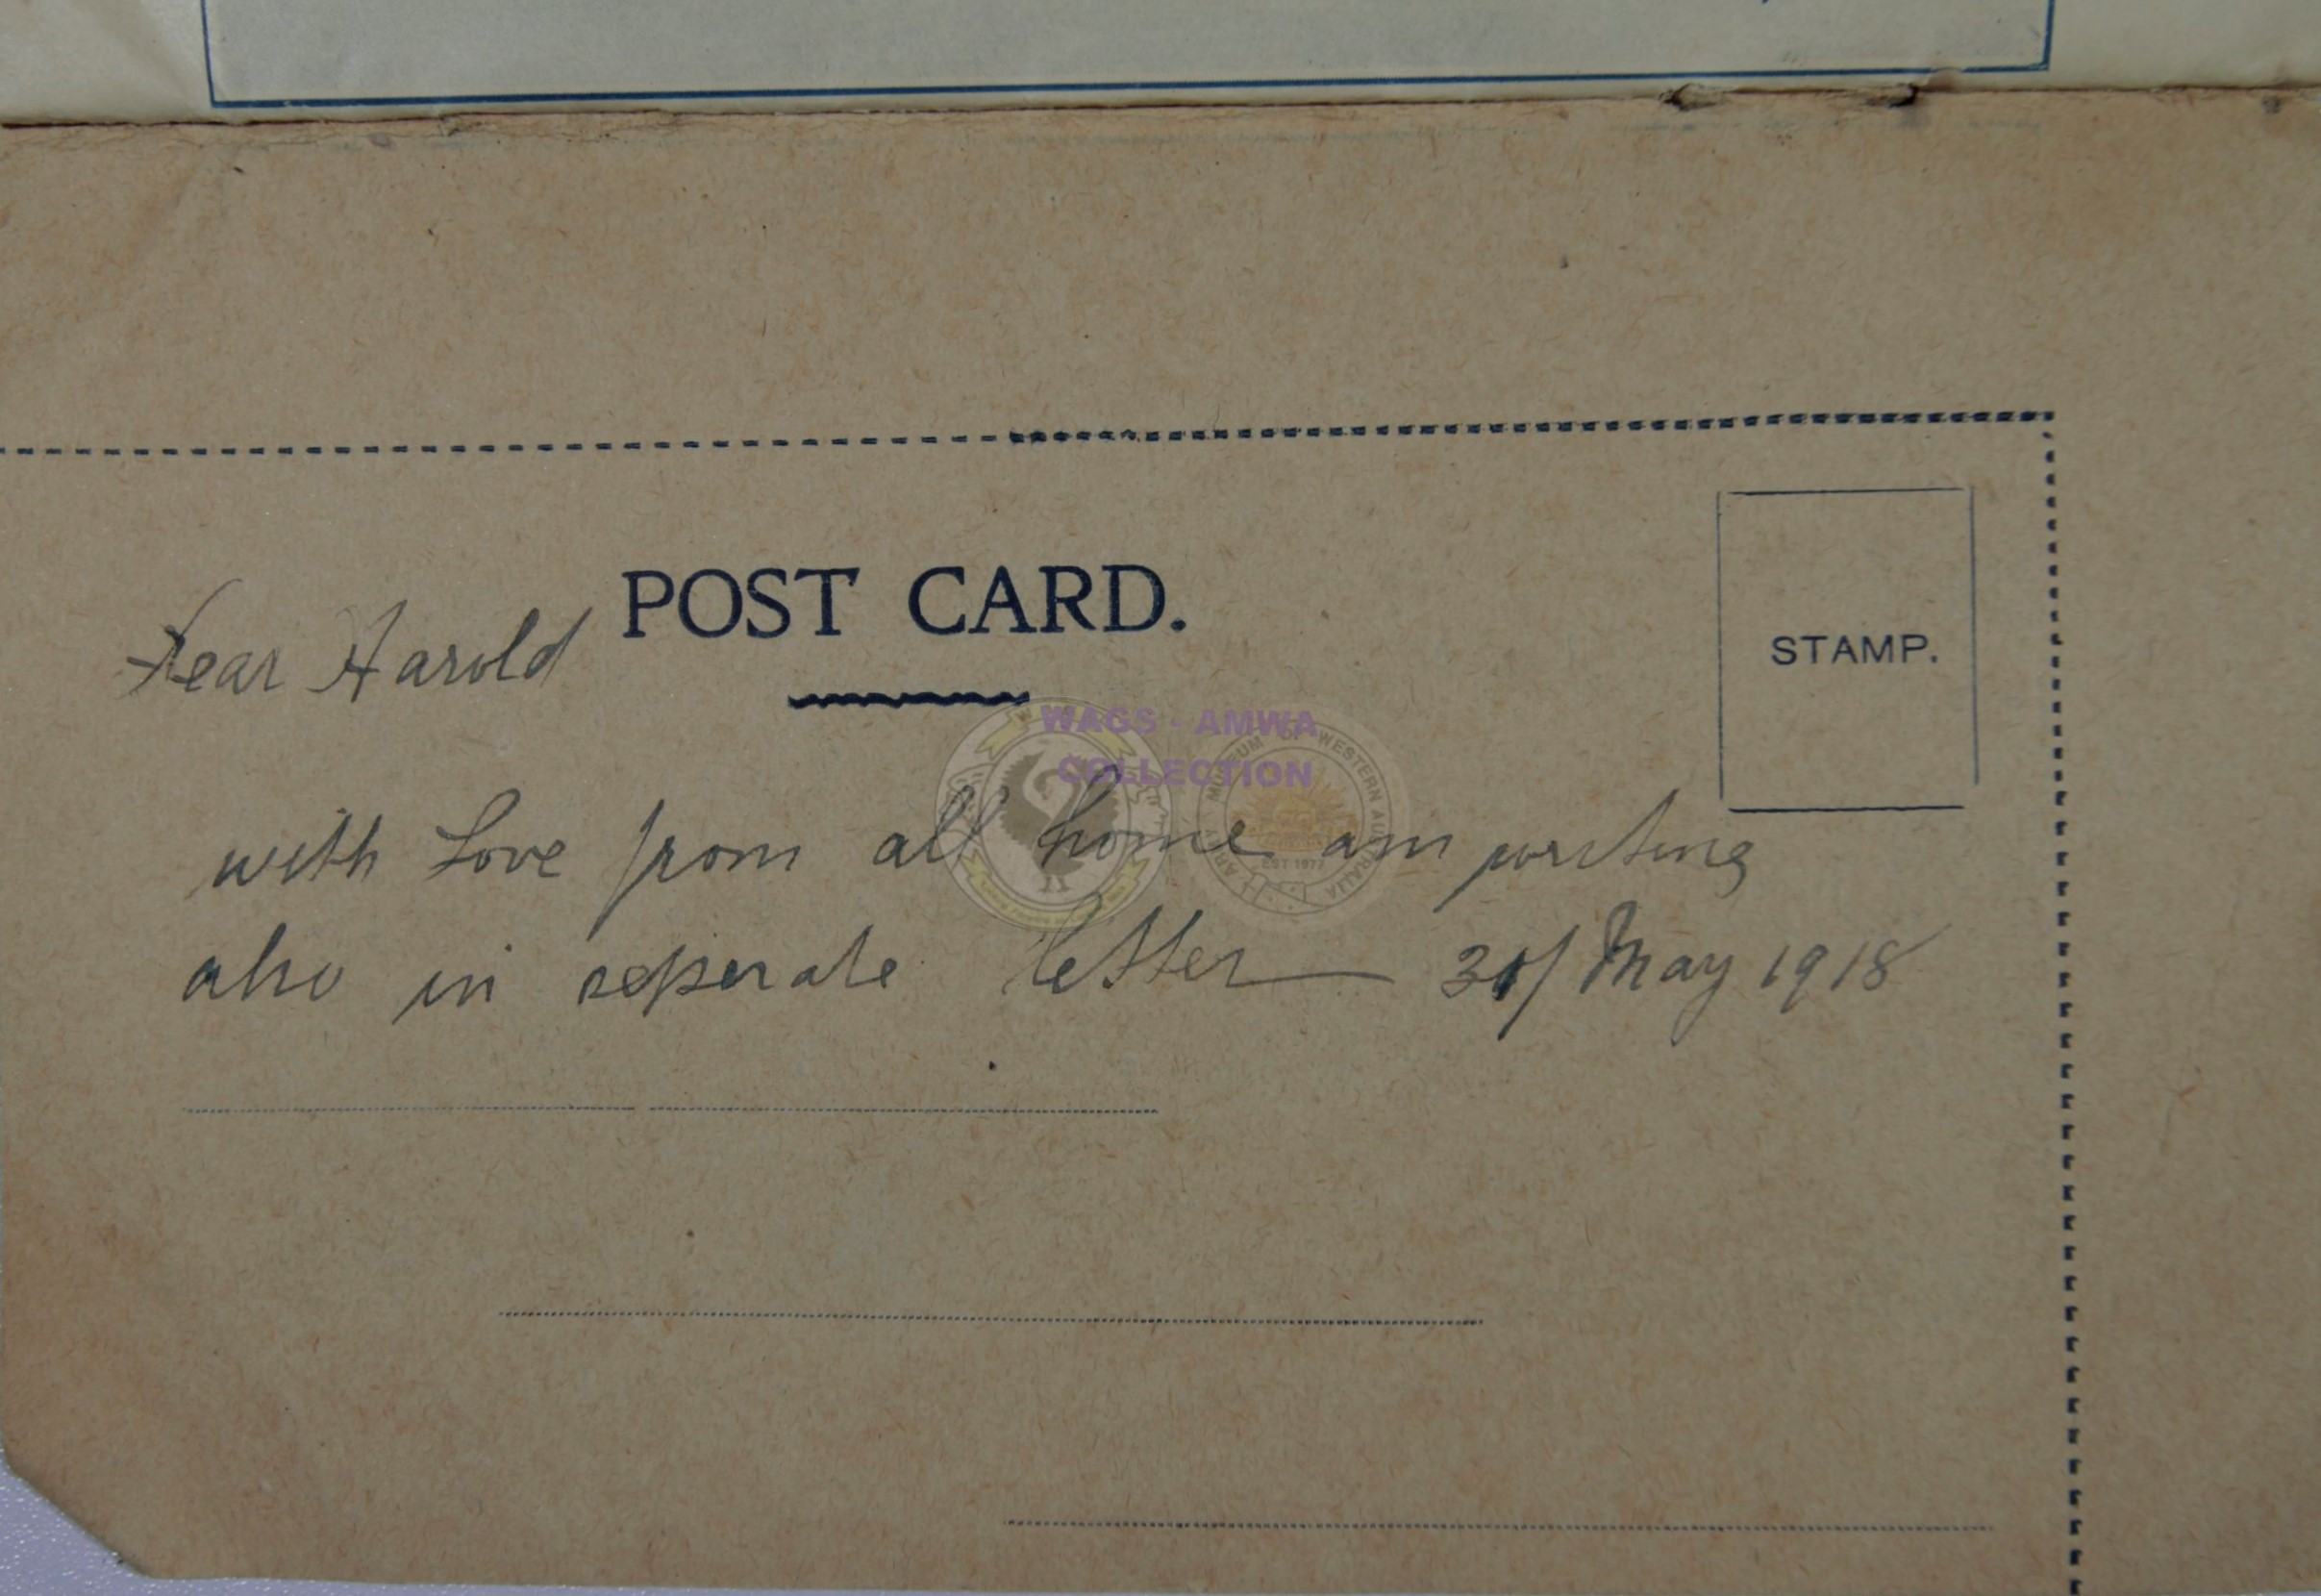 POST CARD.
STAMP.
Dear Harold
with Love from all home am writing
also in seperate letter — May 1918
WAGS - AMWA
COLLECTION
MUSEUM OF WESTERN AUSTRALIA
EST 1977